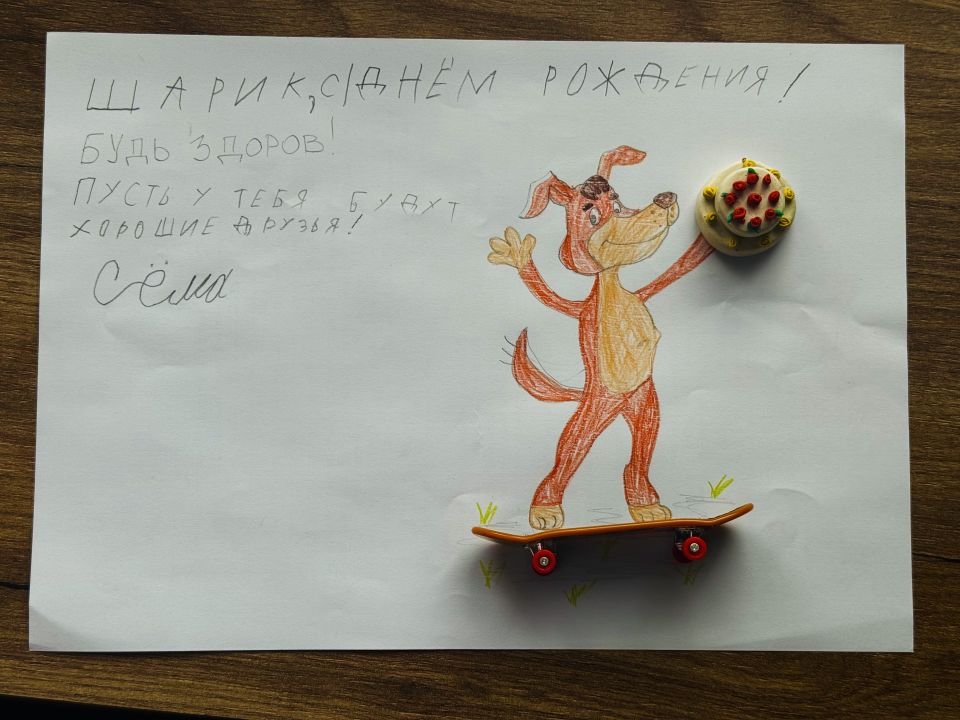 ШАРИК, С ДНЁМ РОЖДЕНИЯ!
БУДЬ ЗДОРОВ!
ПУСТЬ У ТЕБЯ БУДУТ
ХОРОШИЕ ДРУЗЬЯ!
Сёма